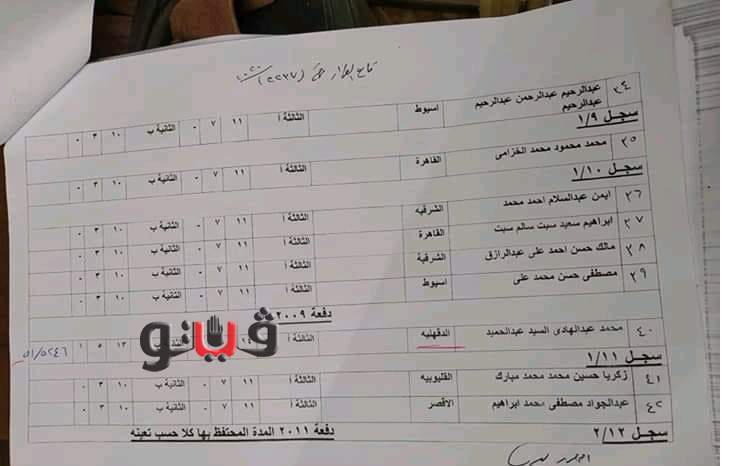 تابع القرار رقم (٢٢٣٧)
٣٤ عبدالرحيم عبدالرحمن عبدالرحيم عبدالرحيم اسيوط الثالثة أ ١١ ٧ ٠ الثانية ب ١٠ ٣ ٠
سجل ١/٩
٣٥ محمد محمود محمد الخزامى القاهرة الثالثة أ ١١ ٧ ٠ الثانية ب ١٠ ٣ ٠
سجل ١/١٠
٣٦ ايمن عبدالسلام احمد محمد الشرقيه الثالثة أ ١١ ٧ ٠ الثانية ب ١٠ ٣ ٠
٣٧ ابراهيم سعيد سبت سالم سبت القاهرة الثالثة أ ١١ ٧ ٠ الثانية ب ١٠ ٣ ٠
٣٨ مالك حسن احمد على عبدالرازق الشرقية الثالثة أ ١١ ٧ ٠ الثانية ب ١٠ ٣ ٠
٣٩ مصطفى حسن محمد على اسيوط الثالثة أ ١١ ٧ ٠ الثانية ب ١٠ ٣ ٠
دفعة ٢٠٠٩
٤٠ محمد عبدالهادى السيد عبدالحميد الدقهليه الثالثة أ ١٣ ٥ ١
ڤيتو
سجل ١/١١
٤١ زكريا حسين محمد محمد مبارك القليوبيه الثالثة أ ١١ ٧ ٠ الثانية ب ١٠ ٣ ٠
٤٢ عبدالجواد مصطفى محمد ابراهيم الاقصر الثالثة أ ١١ ٧ ٠ الثانية ب ١٠ ٣ ٠
دفعة ٢٠١١ المدة المحتفظ بها كلا حسب تعينه
سجل ٢/١٢